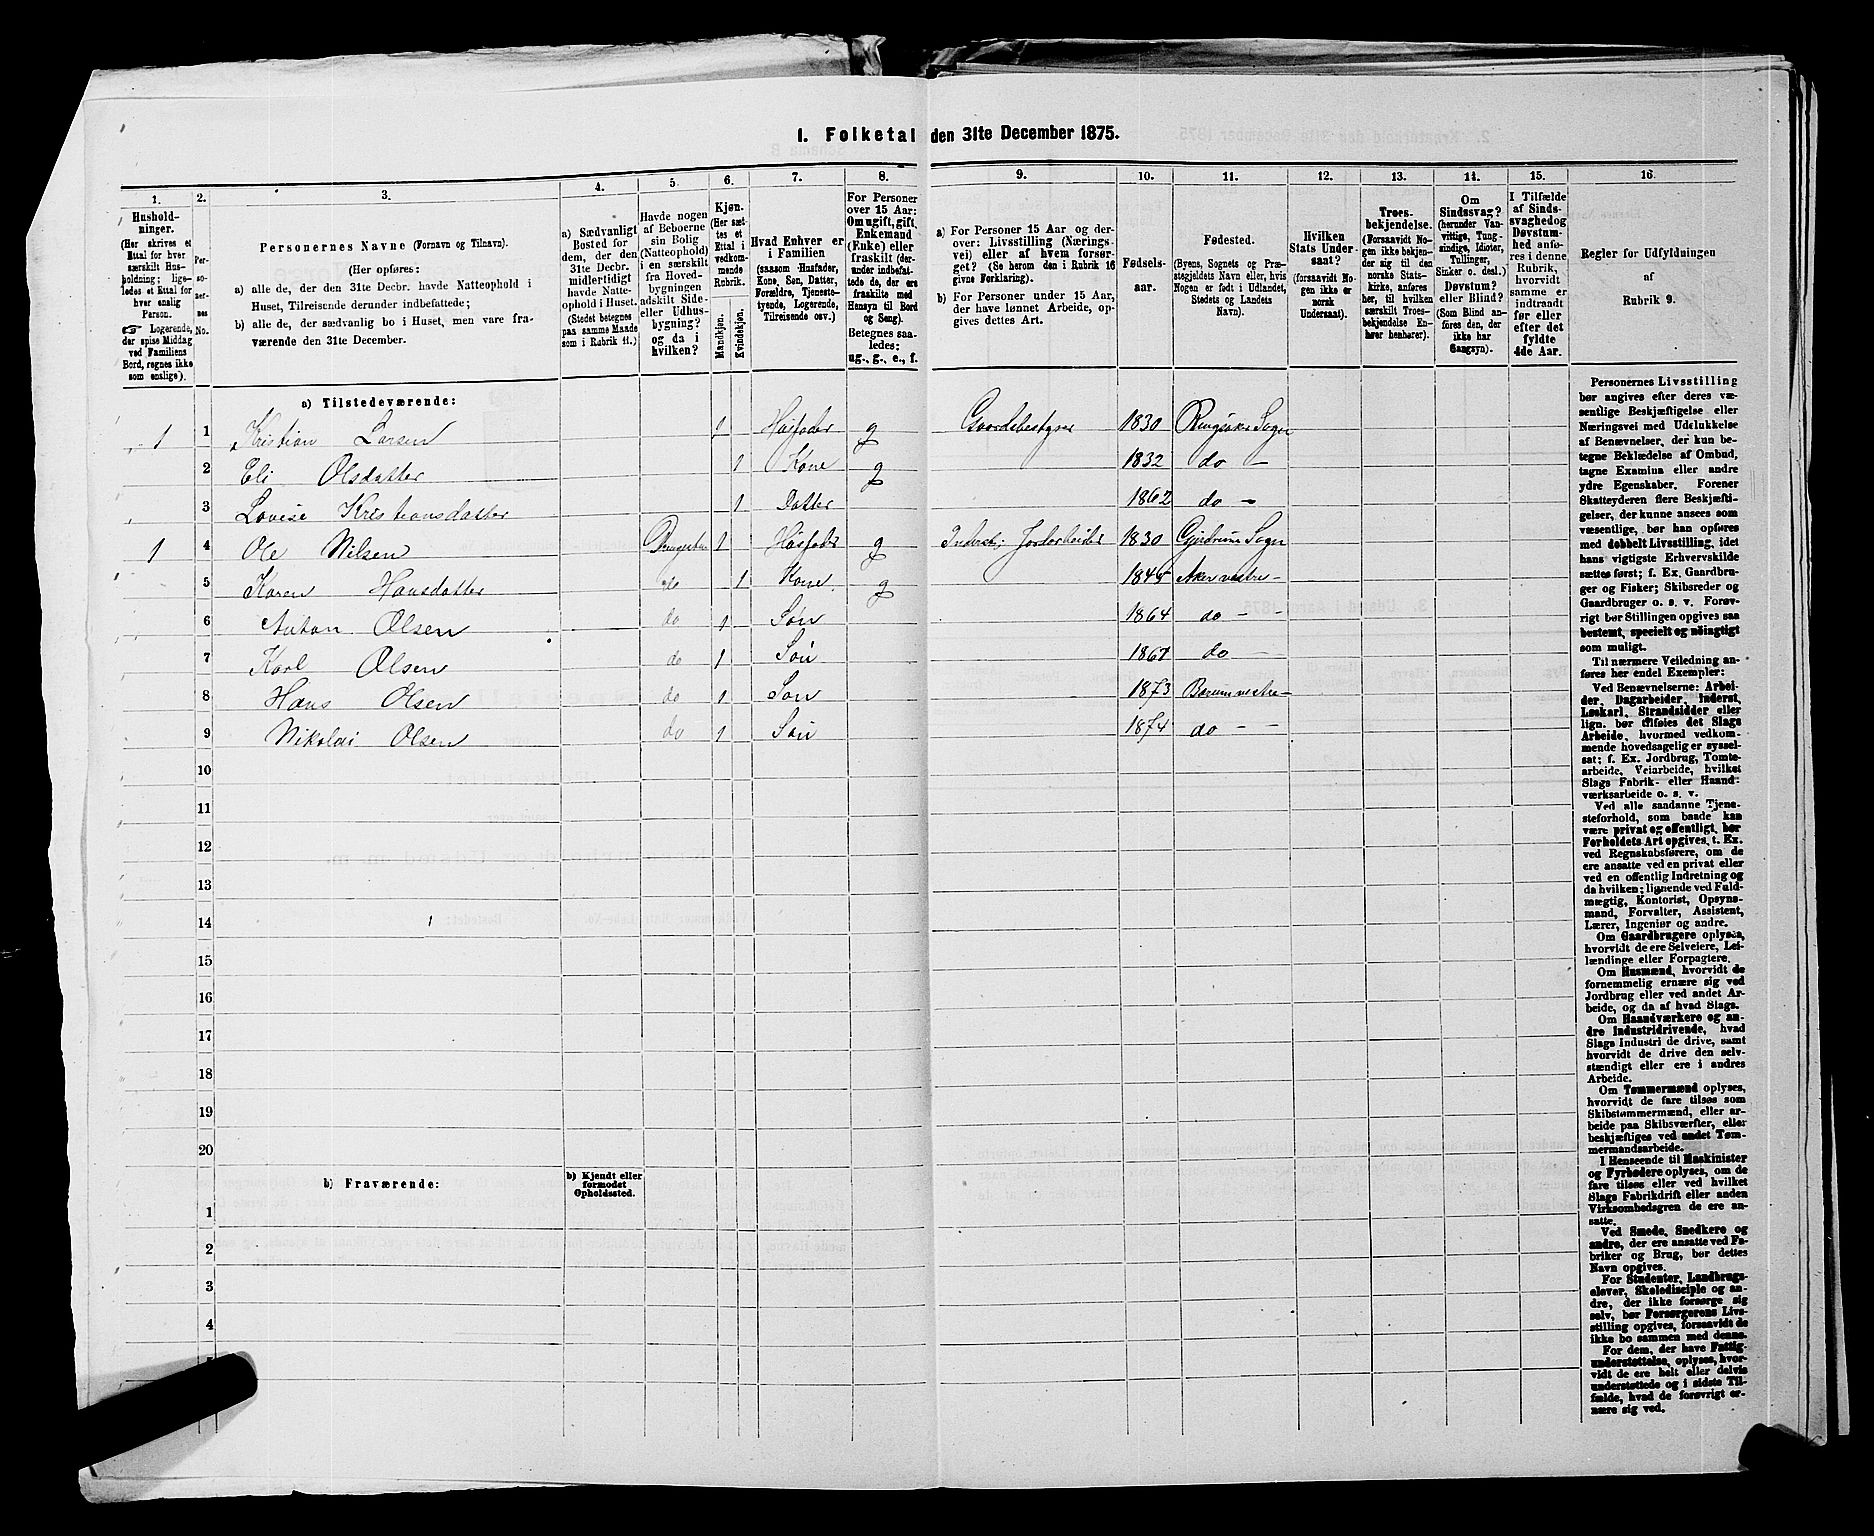 1. Folketal den 31te December 1875.
1. 2. 3. 4. 5. 6. 7. 8. 9. 10. 11. 12. 13. 14. 15. 16.
Husholdninger.
(Her skrives et Ettal for hver særskilt Husholdning; ligeledes et Ettal for hver enslig Person.
☞ Logerende, der spise Middag ved Familiens Bord, regnes ikke som enslige).
Personernes No.
Personernes Navne (Fornavn og Tilnavn).
(Her opføres:
a) alle de, der den 31te Decbr. havde Natteophold i
Huset, Tilreisende derunder indbefattede;
b) alle de, der sædvanlig bo i Huset, men vare fra-
værende den 31te December.
a) Sædvanligt
Bosted for
dem, der den
31te Decbr.
midlertidigt
havde Natte-
ophold i Huset.
(Stedet betegnes
paa samme Maade
som i Rubrik 11.)
Havde nogen
af Beboerne
sin Bolig
(Natteophold)
i en særskilt
fra Hoved-
bygningen
adskilt Side-
eller Udhus-
bygning?
og da i
hvilken?
Kjøn.
(Her sæt-
tes et
Ettal i
vedkom-
mende
Rubrik.
Mandkjøn.
Kvindekjøn.
Hvad Enhver er
i Familien
(saasom Husfader,
Kone, Søn, Datter,
Forældre, Tjeneste-
tyende, Logerende,
Tilreisende osv.)
For Personer
over 15 Aar:
Om ugift, gift,
Enkemand
(Enke) eller
fraskilt (der-
under indbefat-
tede de, der ere
fraskilte med
Hensyn til Bord
og Seng).
Betegnes saa-
ledes:
ug., g., e., f.
a) For Personer 15 Aar og der-
over: Livsstilling (Nærings-
vei) eller af hvem forsør-
get? (Se herom den i Rubrik 16
givne Forklaring).
b) For Personer under 15 Aar,
der have lønnet Arbeide, op-
gives dettes Art.
Fødsels-
aar.
Fødested.
(Byens, Sognets og Præ-
stegjeldets Navn eller, hvis
Nogen er født i Udlandet,
Stedets og Landets
Navn).
Hvilken
Stats Under-
saat?
(forsaavidt No-
gen ikke er
norsk
Undersaat).
Troes-
bekjendelse.
(Forsaavidt No-
gen ikke bekjen-
der sig til den
norske Stats-
kirke, anføres
her, til hvilken
særskilt Troes-
bekjendelse En-
hver henhører).
Om
Sindssvag?
(herunder Van-
vittige, Tung-
sindige, Idioter,
Tullinger,
Sinker o. desl.)
Døvstum?
eller Blind?
(Som Blind an-
føres den, der
ikke har
Gangsyn).
I Tilfælde
af Sinds-
svaghed og
Døvstum-
hed anfø-
res i denne
Rubrik,
hvorvidt
samme er
indtraadt
før eller
efter det
fyldte
4de Aar.
Regler for Udfyldningen
af
Rubrik 9.
a) Tilstedeværende:
1 1 Kristian Larsen 1 Husfader g Gaardsbestyrer 1830 Ringsaker Sogn
2 Eli Olsdatter 1 Kone g 1832 do –
3 Lovise Kristiansdatter 1 Datter 1862 do –
1 4 Ole Nilsen 1 Husfader g Inderst; Jordarbeider 1830 Gjerdrum Sogn
5 Karen Hansdatter do 1 Kone g 1845 Aker vestre –
6 Anton Olsen do 1 Søn 1864 do –
7 Karl Olsen do 1 Søn 1867 do –
8 Hans Olsen do 1 Søn 1873 Bærum vestre –
9 Nikolai Olsen do 1 Søn 1874 do – –
10
11
12
13
14
15
16
17
18
19
20
b) Fraværende:
b) Kjendt eller
formodet
Opholdssted.
1
2
3
4
Personernes Livsstilling
bør angives efter deres væ-
sentlige Beskjæftigelse eller
Næringsvei med Udelukkelse
af Benævnelser, der kun be-
tegne Beklædelse af Ombud,
tagne Examina eller andre
ydre Egenskaber. Forener
Skatteyderen flere Beskjæfti-
gelser, der kunne ansees som
væsentlige, bør han opføres
med dobbelt Livsstilling, idet
hans vigtigste Erhvervskilde
sættes først; f. Ex. Gaardbru-
ger og Fisker; Skibsreder og
Gaardbruger o. s. v. Forøv-
rigt bør Stillingen opgives saa
bestemt, specielt og nöiagtigt
som muligt.
Til nærmere Veiledning an-
føres her endel Exempler:
Ved Benævnelserne: Arbei-
der, Dagarbeider, Inderst,
Løskarl, Strandsidder eller
lign. bør tilføies det Slags
Arbeide, hvormed vedkom-
mende hovedsagelig er syssel-
sat; f. Ex. Jordbrug, Tomte-
arbeide, Veiarbeide, hvilket
Slags Fabrik- eller Haand-
værksarbeide o. s. v.
Ved alle saadanne Tjene-
steforhold, som baade kan
være privat og offentligt, bør
Forholdets Art opgives, t. Ex.
ved Regnskabsførere, om de
ere ansatte ved en privat eller
ved en offentlig Indretning og
da hvilken; lignende ved Fuld-
mægtig, Kontorist, Opsyns-
mand, Forvalter, Assistent,
Lærer, Ingeniør og andre.
Om Gaardbrugere oplyses,
hvorvidt de ere Selveiere, Lei-
lændinge eller Forpagtere.
Om Husmænd, hvorvidt de
fornemmelig ernære sig ved
Jordbrug eller ved andet Ar-
beide, og da af hvad Slags.
Om Haandværkere og an-
dre Industridrivende, hvad
Slags Industri de drive, samt
hvorvidt de drive den selv-
stændigt eller ere i andres
Arbeide.
Om Tømmermænd oplyses,
hvorvidt de fare tilsøs som
Skibstømmermænd, eller ar-
beide paa Skibsværfter, eller
beskjæftiges ved andet Tøm-
mermandsarbeide.
I Henseende til Maskinister
og Fyrbødere oplyses, om de
fare tilsøs eller ved hvilket
Slags Fabrikdrift eller anden
Virksomhedsgren de ere an-
satte.
Ved Smede, Snedkere og
andre, der ere ansatte ved Fa-
briker og Brug, bør dettes
Navn opgives.
For Studenter, Landbrugs-
elever, Skoledisciple og an-
dre, der ikke forsørge sig
selv, bør Forsørgerens Livs-
stilling opgives, forsaavidt de
ikke bo sammen med denne.
For dem, der have Fattig-
understøttelse, oplyses, hvor-
vidt de ere helt eller delvis
understøttede og i sidste Til-
fælde, hvad de forøvrigt er-
nære sig ved.